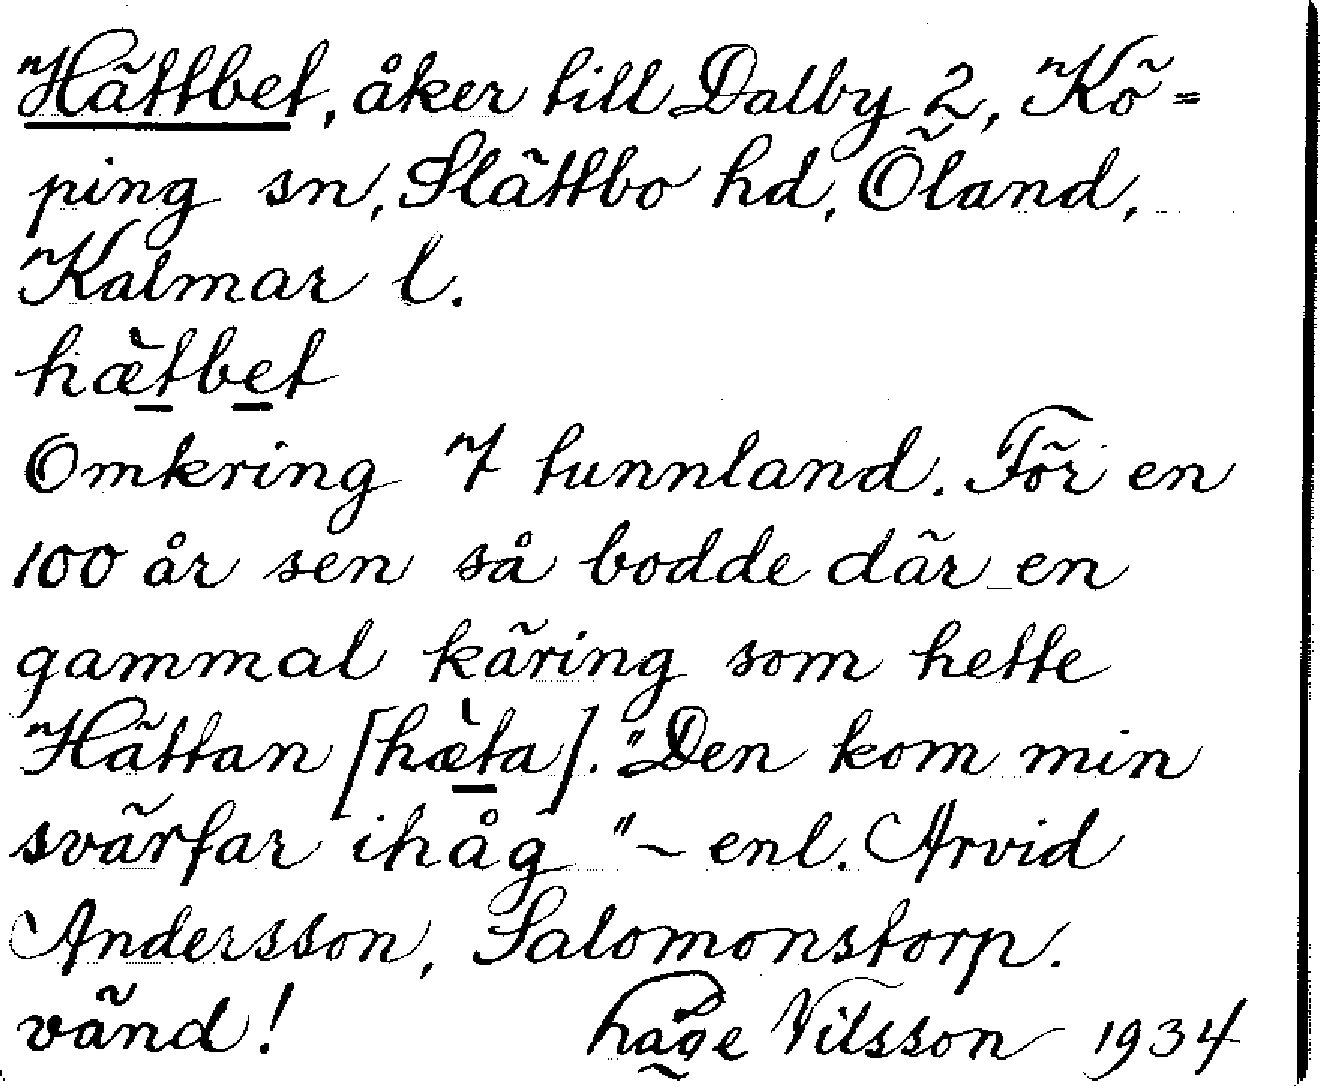 Hättbet, åker till Dalby 2, Kö=
ping sn, Slättbo hd, Öland,
Kalmar l.
hæ̀tbet
Omkring 7 tunnland. För en
100 år sen så bodde där en
gammal käring som hette
Hättan [hæ̀ta]. "Den kom min
svärfar ihåg" ~ enl. Arvid
Andersson, Salomonstorp.
vänd! Nilsson 1934